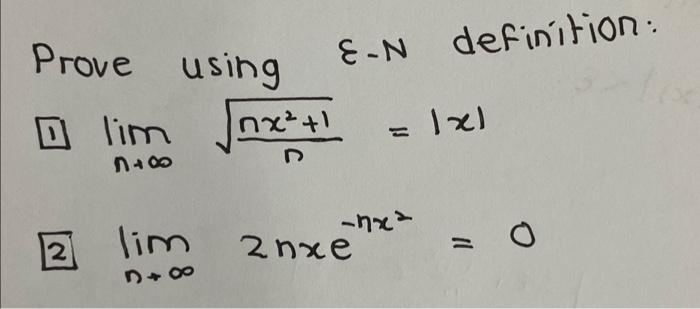 Prove using ε-N definition:
1 lim n→∞ √((nx²+1)/n) = |x|
2 lim n→∞ 2nxe^(-nx²) = 0